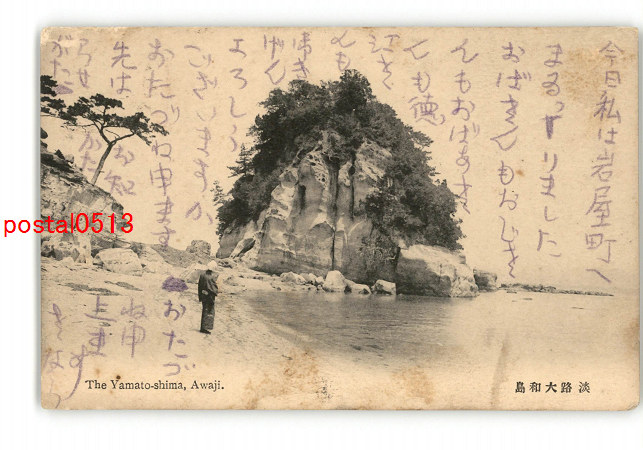 今日私は岩屋町へ
まゐりました
おばさんもおじさ
んもおばあさ
んも徳
江さ
んも
げん
よろしう
ございますか
おたづね申ます
先はお知
らせかた
がた
おたづ
ね申
上ます
さよ
postal0513
The Yamato-shima, Awaji.
淡路大和島